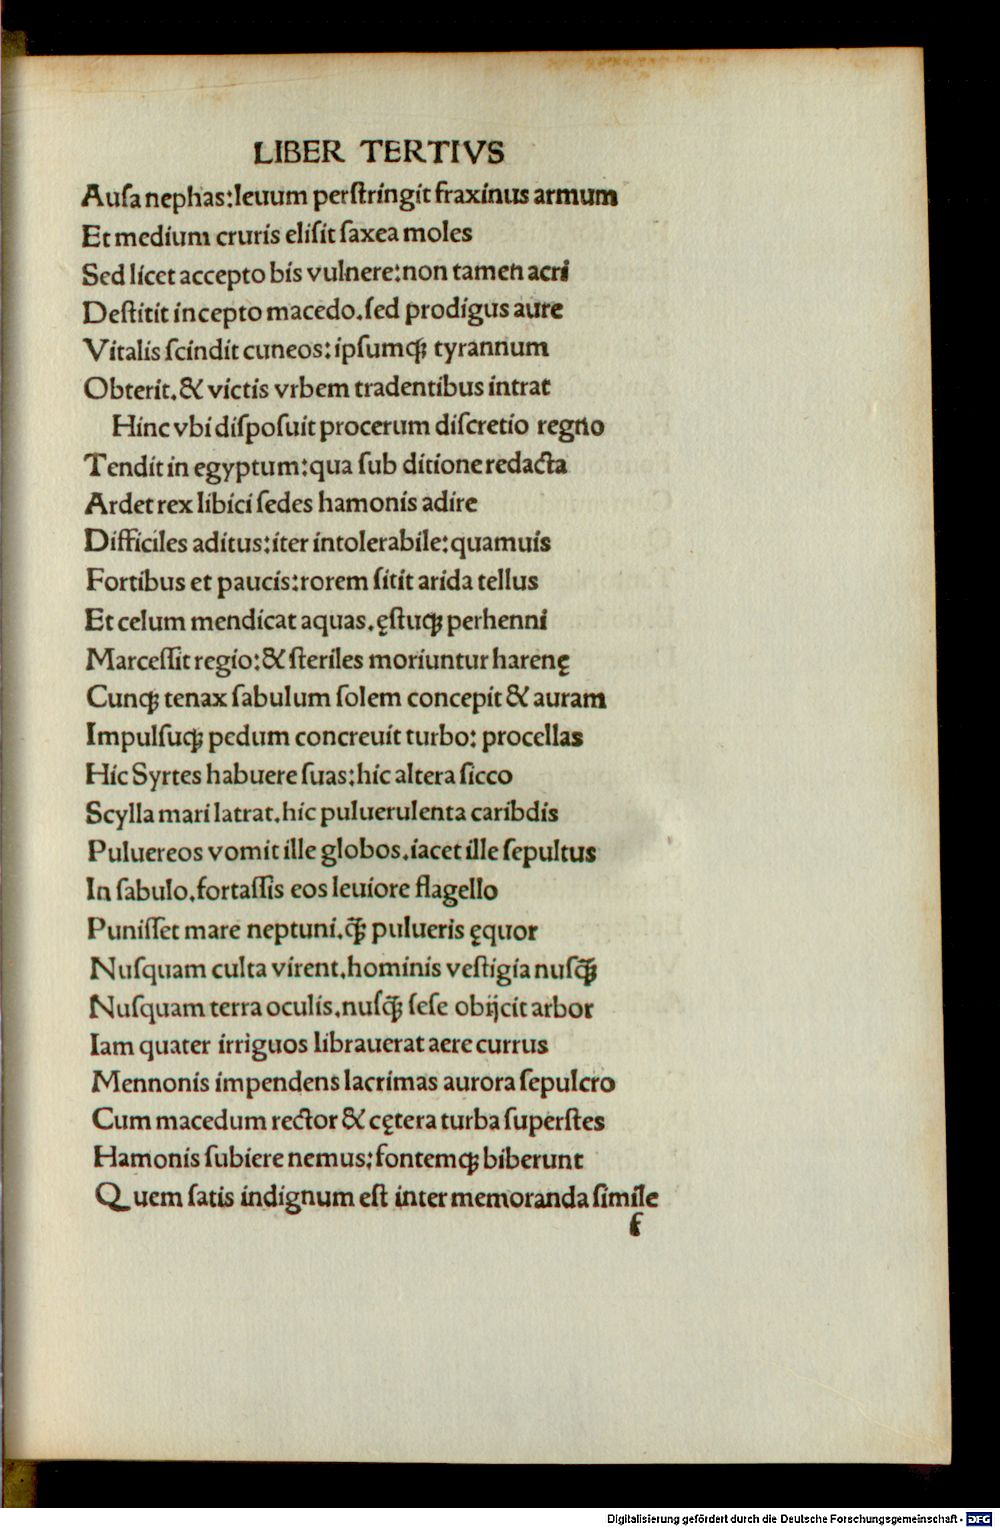 LIBER TERTIVS
Auſa nephas:leuum perſtringit fraxinus armum
Et medium cruris eliſit ſaxea moles
Sed licet accepto bis vulnere:non tamen acri
Deſtitit incepto macedo.ſed prodigus aure
Vitalis ſcindit cuneos:ipſumqꝫ tyrannum
Obterit.& victis vrbem tradentibus intrat
Hinc vbi diſpoſuit procerum diſcretio regno
Tendit in egyptum:qua ſub ditione redacta
Ardet rex libici ſedes hamonis adire
Difficiles aditus:iter intolerabile:quamuis
Fortibus et paucis:rorem ſitit arida tellus
Et celum mendicat aquas.ęſtuqꝫ perhenni
Marceſſit regio:& ſteriles moriuntur harenę
Cunqꝫ tenax ſabulum ſolem concepit & auram
Impulſuqꝫ pedum concreuit turbo: procellas
Hic Syrtes habuere ſuas:hic altera ſicco
Scylla mari latrat.hic puluerulenta caribdis
Puluereos vomit ille globos.iacet ille ſepultus
In ſabulo.fortaſſis eos leuiore flagello
Puniſſet mare neptuni.q̄ꝫ pulueris ęquor
Nuſquam culta virent.hominis veſtigia nuſq̄ꝫ
Nuſquam terra oculis.nuſq̄ꝫ ſeſe obijcit arbor
Iam quater irriguos librauerat aere currus
Mennonis impendens lacrimas aurora ſepulcro
Cum macedum rector & cętera turba ſuperſtes
Hamonis ſubiere nemus:fontemqꝫ biberunt
Quem ſatis indignum eſt inter memoranda ſimile
f
Digitalisierung gefördert durch die Deutsche Forschungsgemeinschaft - DFG